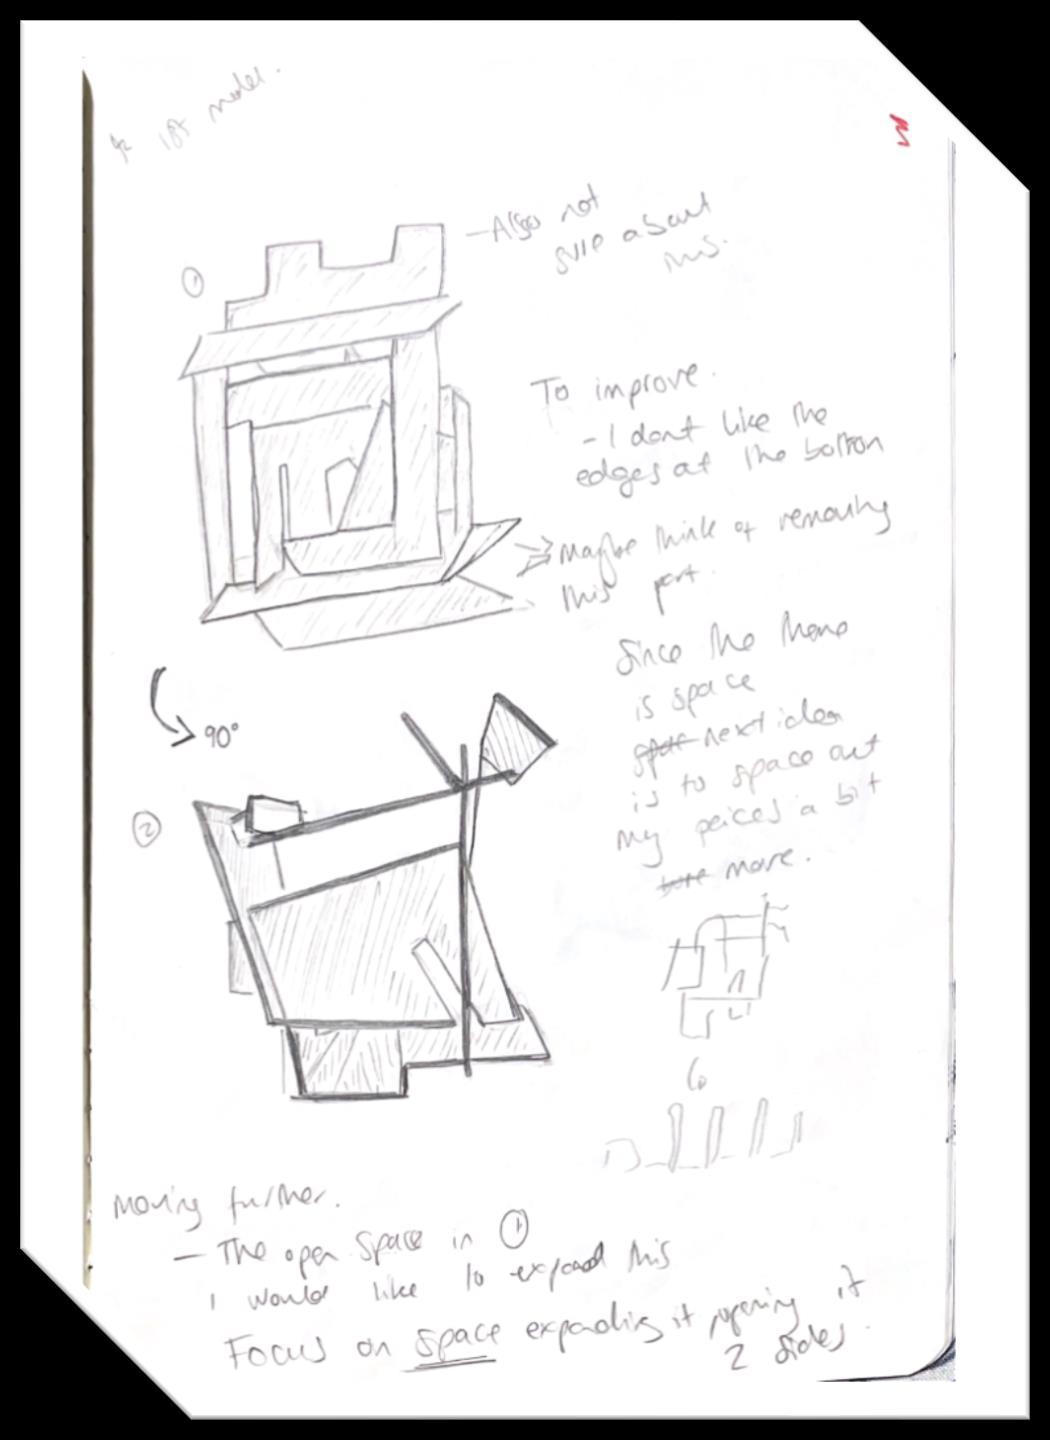 1st model.
— Also not
sure about
this.
①
To improve.
- I dont like the
edges at the bottom
Maybe think of removing
this part.
Since the theme
is space
next idea
is to space out
my peices a bit
more.
90°
②
Moving further.
— The open space in ①
I would like to expand this
Focus on space expanding it opening it
2 sides.